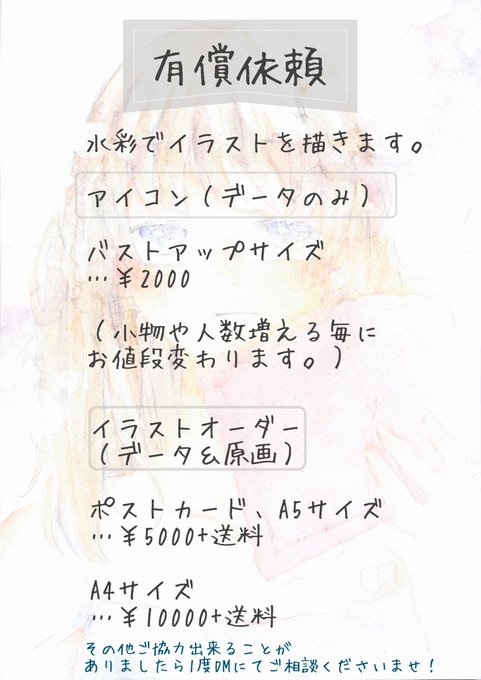 有償依頼
水彩でイラストを描きます。
アイコン（データのみ）
バストアップサイズ
…￥2000
（小物や人数増える毎に
お値段変わります。）
イラストオーダー
（データ&原画）
ポストカード、A5サイズ
…￥5000+送料
A4サイズ
…￥10000+送料
その他ご協力出来ることが
ありましたら1度DMにてご相談くださいませ！